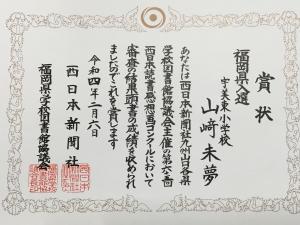 賞状
福岡県入選
宇美東小学校
山﨑未夢
あなたは西日本新聞社九州山口各県
学校図書館協議会主催の第六六回
西日本読書感想画コンクールにおいて
審査の結果頭書の成績を収められ
ましたのでこれを賞します
令和四年二月六日
西日本新聞社
福岡県学校図書館協議会